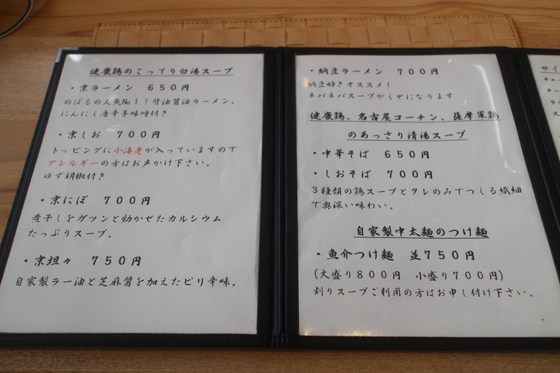 健康鶏のこってり白湯スープ
・京ラーメン 650円
のぼるの人気No1!分油醤油ラーメン。
にんにく唐辛子味噌付き
・京しお 700円
トッピングに小海老が入っていますので
アレルギーの方はお声かけ下さい。
ゆず胡椒付き
・京にぼ 700円
煮干しをガツンと効かせたカルシウム
たっぷりスープ。
・京坦々 750円
自家製ラー油と芝麻醤を加えたピリ辛味。
・納豆ラーメン 700円
納豆好きオススメ!
ネバネバスープがくせになります
健康鶏、名古屋コーチン、薩摩軍鶏
のあっさり清湯スープ
・中華そば 650円
・しおそば 700円
3種類の鶏スープとタレのみでつくる繊細
で奥深い味わい。
自家製中太麺のつけ麺
・魚介つけ麺 並750円
(大盛り800円 小盛り700円)
割りスープご利用の方はお申し付け下さい。
サイ